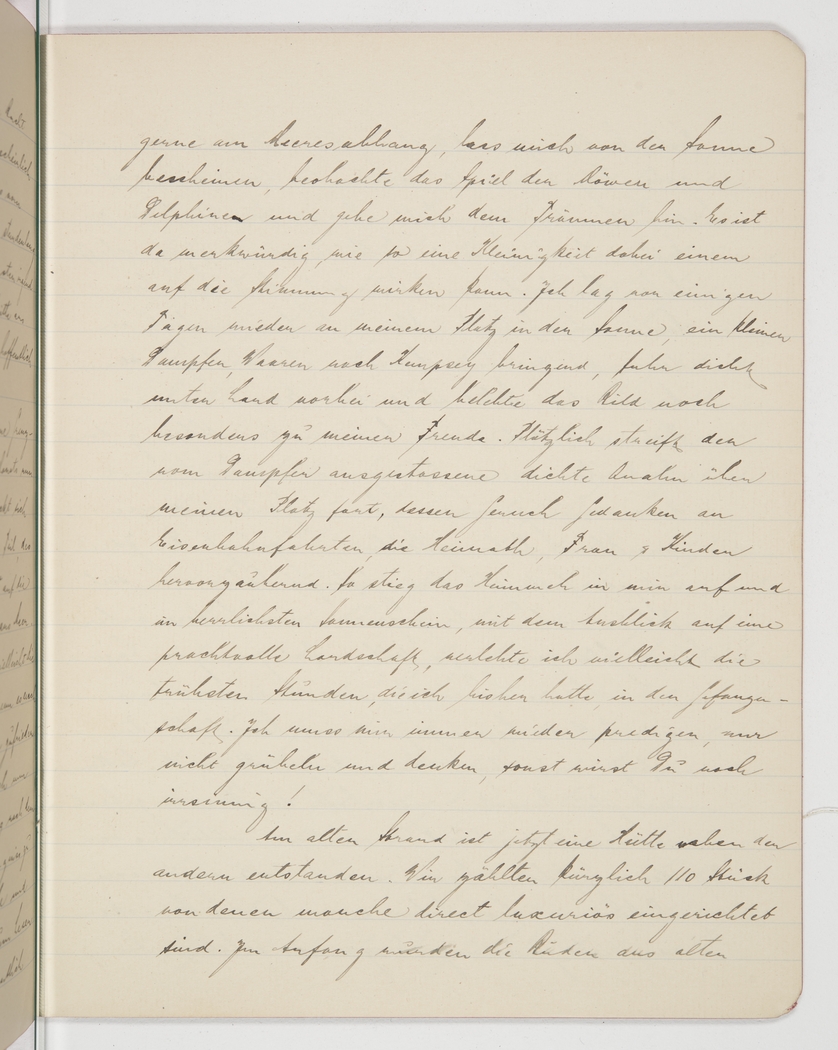 gerne am Meeresabhang, lass mich von der Sonne
bescheinen, beobachte das Spiel der Möwen und
Delphinen und gebe mich dem Träumen hin. Es ist
da merkwürdig, wie so eine Kleinigkeit dabei einem
auf die Stimmung wirken kann. Ich lag vor einigen
Tagen wieder an meinem Platz in der Sonne, ein kleiner
Dampfer, Waaren nach Kempsey bringend, fuhr dicht
unter Land vorbei und belebte das Bild noch
besonders zu meiner Freude. Plötzlich streift der
vom Dampfer ausgestossene dichte Qualm über
meinen Platz fort, dessen Geruch Gedanken an
Eisenbahnfahrten, die Heimath, Frau & Kinder
hervorzaubernd. So stieg das Heimweh in mir auf und
im herrlichsten Sonnenschein, mit dem Ausblick auf eine
prachtvolle Landschaft, verlebte ich vielleicht die
trübsten Stunden, die ich bisher hatte, in der Gefangen-
schaft. Ich muss mir immer wieder predigen, nur
nicht grübeln und denken, sonst wirst Du noch
irrsinnig!
Am alten Strand ist jetzt eine Hütte neben der
andern entstanden. Wir zählten kürzlich 110 Stück
von denen manche direct luxuriös eingerichtet
sind. Im Anfang wurden die Buden aus alten